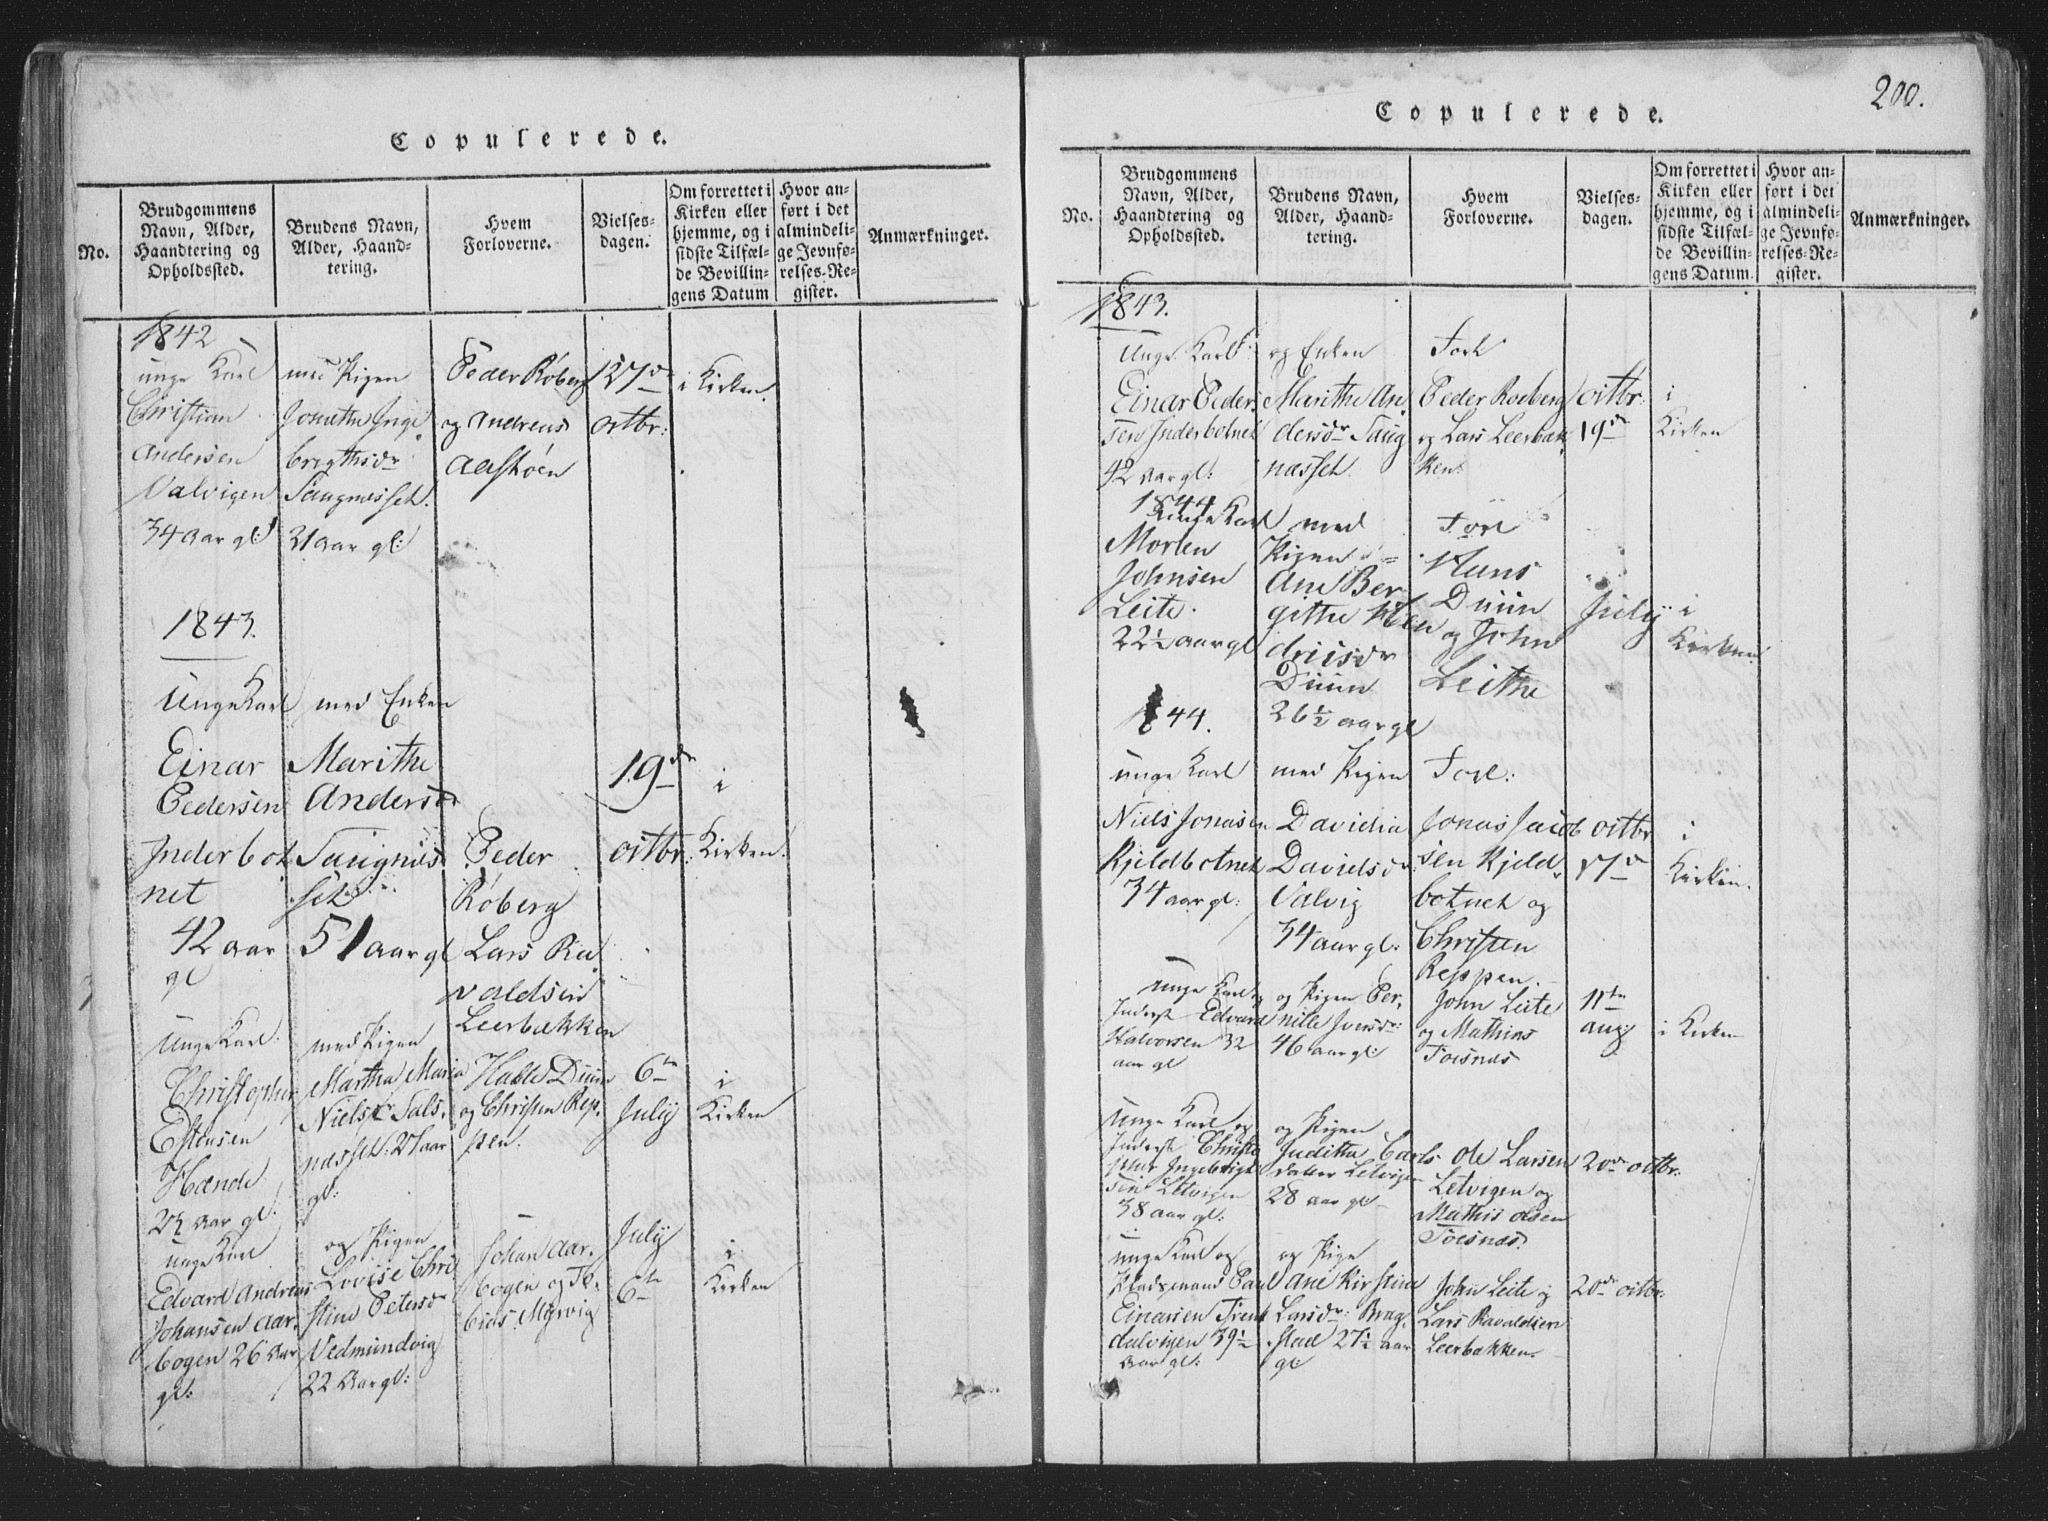 Copulerede.
No.
Brudgommens
Navn, Alder,
Haandtering og
Opholdssted.
Brudens Navn,
Alder, Haand-
tering.
Hvem
Forloverne.
Vielses-
dagen.
Om forrettet i
Kirken eller
hjemme, og i
sidste Tilfæl-
de Bevillin-
gens Datum
Hvor an-
ført i det
almindeli-
ge Jevnfø-
relses-Re-
gister.
Anmærkninger.
1842
unge Karl
Christian
Andersen
Valvigen
34 aar gl:
med Pigen
Inge
brigthsdr
Saugnesset.
21 aar gl:
Peder Röberg
og Andreas
Aasköen
127de
octbr:
i Kirken.
1843.
Unge Karl
Einar
Pedersen
Inderbot
net
42 aar
gl
med Enken
Marithe
Andersdr
Saugnes
set
51 aar gl
Peder
Röberg
Lars Ra
valdsen
Leerbækken
19de
octbr:
i
Kirken.
Unge Karl
Christopher
Estensen
Hænde
aar gl:
med Pigen
Martha Maria
Nielsdr Sals-
næsset: aar
gl:
Halle Duun
og Christen Rep-
pen.
6te
July
i
Kirken
unge Karl
Edvard Andreas
Johansen Aar-
bogen 26 aar
gl:
og Pigen
Lovise Chri
stine Petersdr
Vedmundvig
22 aar gl:
Johan Aar-
bogen og To-
bias Myrvig
July
6te
i
Kirken
200.
Copulerede.
No.
Brudgommens
Navn, Alder,
Haandtering og
Opholdssted.
Brudens Navn,
Alder, Haand-
tering.
Hvem
Forloverne.
Vielses-
dagen.
Om forrettet i
Kirken eller
hjemme, og i
sidste Tilfæl-
de Bevillin-
gens Datum.
Hvor an-
ført i det
almindeli-
ge Jevnfø-
relses-Re-
gister.
Anmærkninger.
1843.
Unge Karl
Einar Peder-
sen Inderbotnet
42 aar gl:
og Enken
Marithe An-
dersdr Saug
næsset.
Forl
Peder Roeberg
og Lars Leerbæk
ken:
octbr:
19de
i
Kirken
1844
Unge Karl
Morten
Johnsen
Leite.
22½ aar gl
med
Pigen
Ane Ber
githe Hen
dricsdr
Duun
26½ aar gl
Forl
Hans
Duun
og John
Leithe
July
i
Kirken.
1844.
unge Karl
Niels Jonasen
Kjeldbotnet
34 aar gl:
med Pigen
Davidia
Davidsdr
Valvig
34 aar gl:
Forl:
Jonas Jacob
sen Kjeld-
botnet og
Christen
Reppen.
octbr
17de
i
Kirken.
unge Karl og
Inderst Edvard
Halvorsen 32
aar gl
og Pigen Per-
nille Iversdr:
46 aar gl:
John Leite
og Mathias
Foesnes
11te
aug:
i Kirken
unge Karl og
Inderst Christo
pher Ingebrigt
sen Letvigen
38 aar gl:
og Pigen
Juditha Carls
datter Letvigen
28 aar gl
Ole Larsen
Letvigen og
Mathis Olsen
Foesnes:
20de octbr:
unge Karl og
Pladsmand Paul
Einarsen Trent
dalvigen 39½
aar gl:
og Pige
Ane Kirstina
Larsdr: Brag-
stad 27½ aar
gl:
John Leite og
Lars Ravaldsen
Leerbækken.
20de octbr: